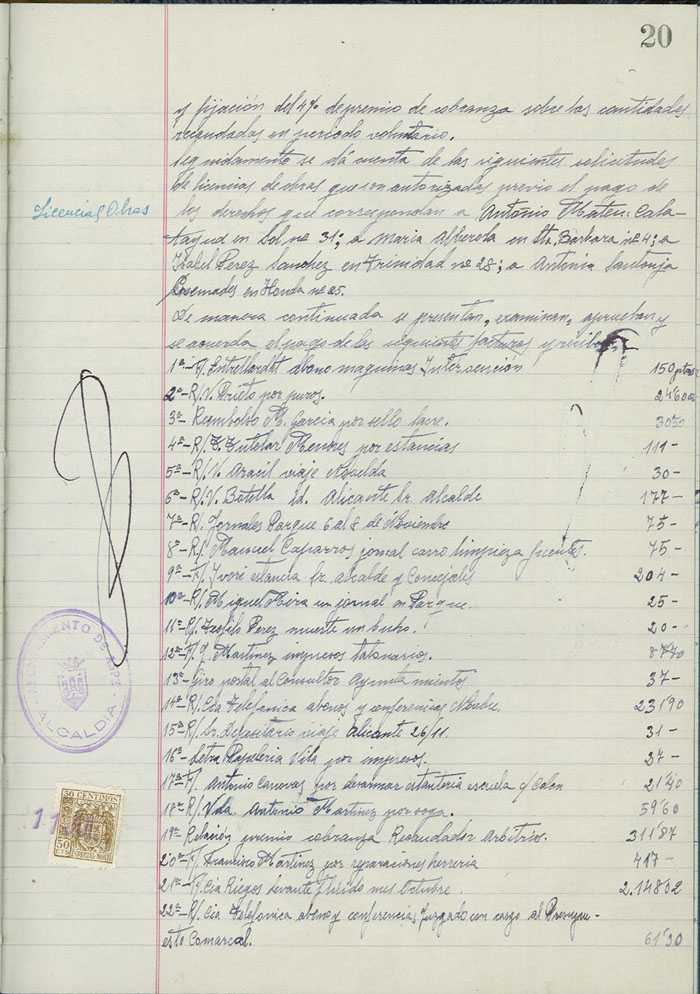 20
y fijación del 4% de premio de cobranza sobre las cantidades
recaudadas en período voluntario.
Seguidamente se dá cuenta de las siguientes solicitudes
de licencias de obras que son autorizadas previo el pago de
Licencias Obras
los derechos que correspondan a Antonio Mateu Cala-
tayud en Sol nº 31; a Maria Alberola en Sta. Barbara nº 4; a
Isabel Perez Sanchez en Trinidad nº 28; a Antonia Santonja
en Honda nº 25.
De manera continuada se presentan, examinan, aprueban y
se acuerda el pago de las siguientes facturas y recibos:
1ª-F/. abono maquinas Intervención 150 ptas
2ª-R/. V. Prieto por puros. 24'60
3ª- Reembolso M. Garcia por sello lacre. 30'50
4ª-R/. Tutelar Menores por estancias 111-
5ª-R/. V. Aracil viaje Novelda 30-
6ª-R/. V. Botella id. Alicante Sr. Alcalde 177-
7ª-R/. Jornales Parque 6 al 8 de Noviembre 75-
8ª-R/. Manuel Caparros jornal carro limpieza fuentes. 75-
9ª-F/. Yvori estancia Sr. Alcalde y Concejales 204-
10ª-R/. Miguel Mira un jornal en Parque. 25-
11ª-R/. Teofilo Perez muerte un buho. 20-
12ª-F/. Martinez impresos talonarios. 87'70
13ª-Giro postal al Consultor Ayuntamientos 37-
14ª-R/. Cia Telefonica abonos y conferencias Novbre. 231'90
15ª-R/. Sr. Depositario viaje Alicante 26/11. 31-
16ª-Letra Papeleria Vila por impresos. 27-
17ª-F/. Antonio Canovas por desarmar estanteria escuela c/ Colon 21'40
18ª-R/. Vda. Antonio Martinez por soga. 59'60
19ª-Relación premio cobranza Recaudador Arbitrios. 311'87
20ª-F/. Francisco Martinez por reparaciones herreria 417-
21ª-F/. Cia Riegos Levante fluido mes Octubre. 2.148'02
22ª-R/. Cia Telefonica abono y conferencias Juzgado con cargo al Presupu-
esto Comarcal. 61'90
AYUNTAMIENTO DE ASPE
ALCALDIA
50 CENTIMOS
50
ESPECIAL MOVIL